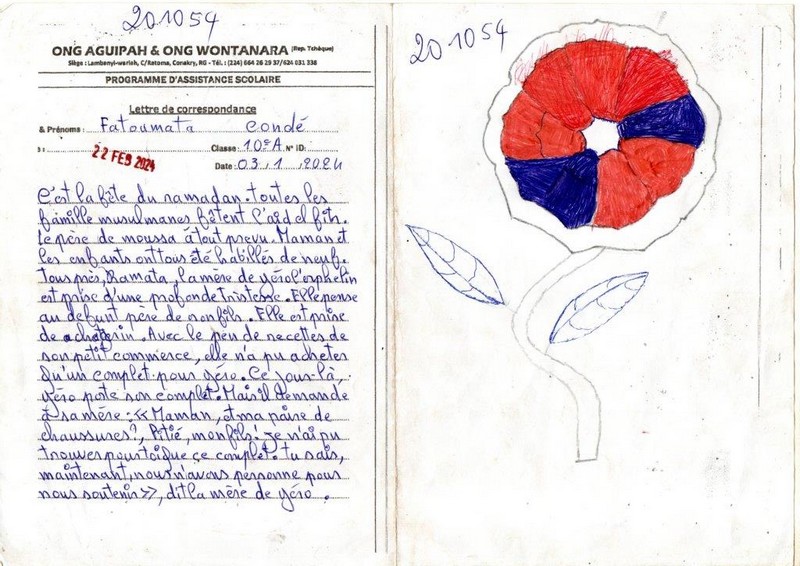 201054
ONG AGUIPAH & ONG WONTANARA (Rep. Tchèque)
Siège : Lambanyi-warish, C/Ratoma, Conakry, RG - Tél. : (224) 664 26 29 37/624 031 338
PROGRAMME D'ASSISTANCE SCOLAIRE
Lettre de correspondance
& Prénoms : Fatoumata Condé
: Classe : 10e A. N° ID:
22 FEB 2024
Date : 03 / 1 / 2024
C'est la fête du ramadan. toutes les
famille musulmanes fêtent l'aid el fitr.
Le père de moussa à tout prevu. Maman et
les enfants ont tous été habillés de neuf.
Tous près, Ramata, la mère de yéro l'orphelin
est prise d'une profonde tristesse. Elle pense
au defunt père de son fils. Elle est prise
de chagrin. Avec le peu de recettes de
son petit commerce, elle n'a pu acheter
qu'un complet pour yéro. Ce jour-là,
yéro porte son complet. Mais il demande
à sa mère : << Maman, et ma paire de
chaussures?, Pitié, mon fils! je n'ai pu
trouver pour toi que ce complet. tu sais,
maintenant, nous n'avons personne pour
nous soutenir >>, dit la mère de yéro .
201054